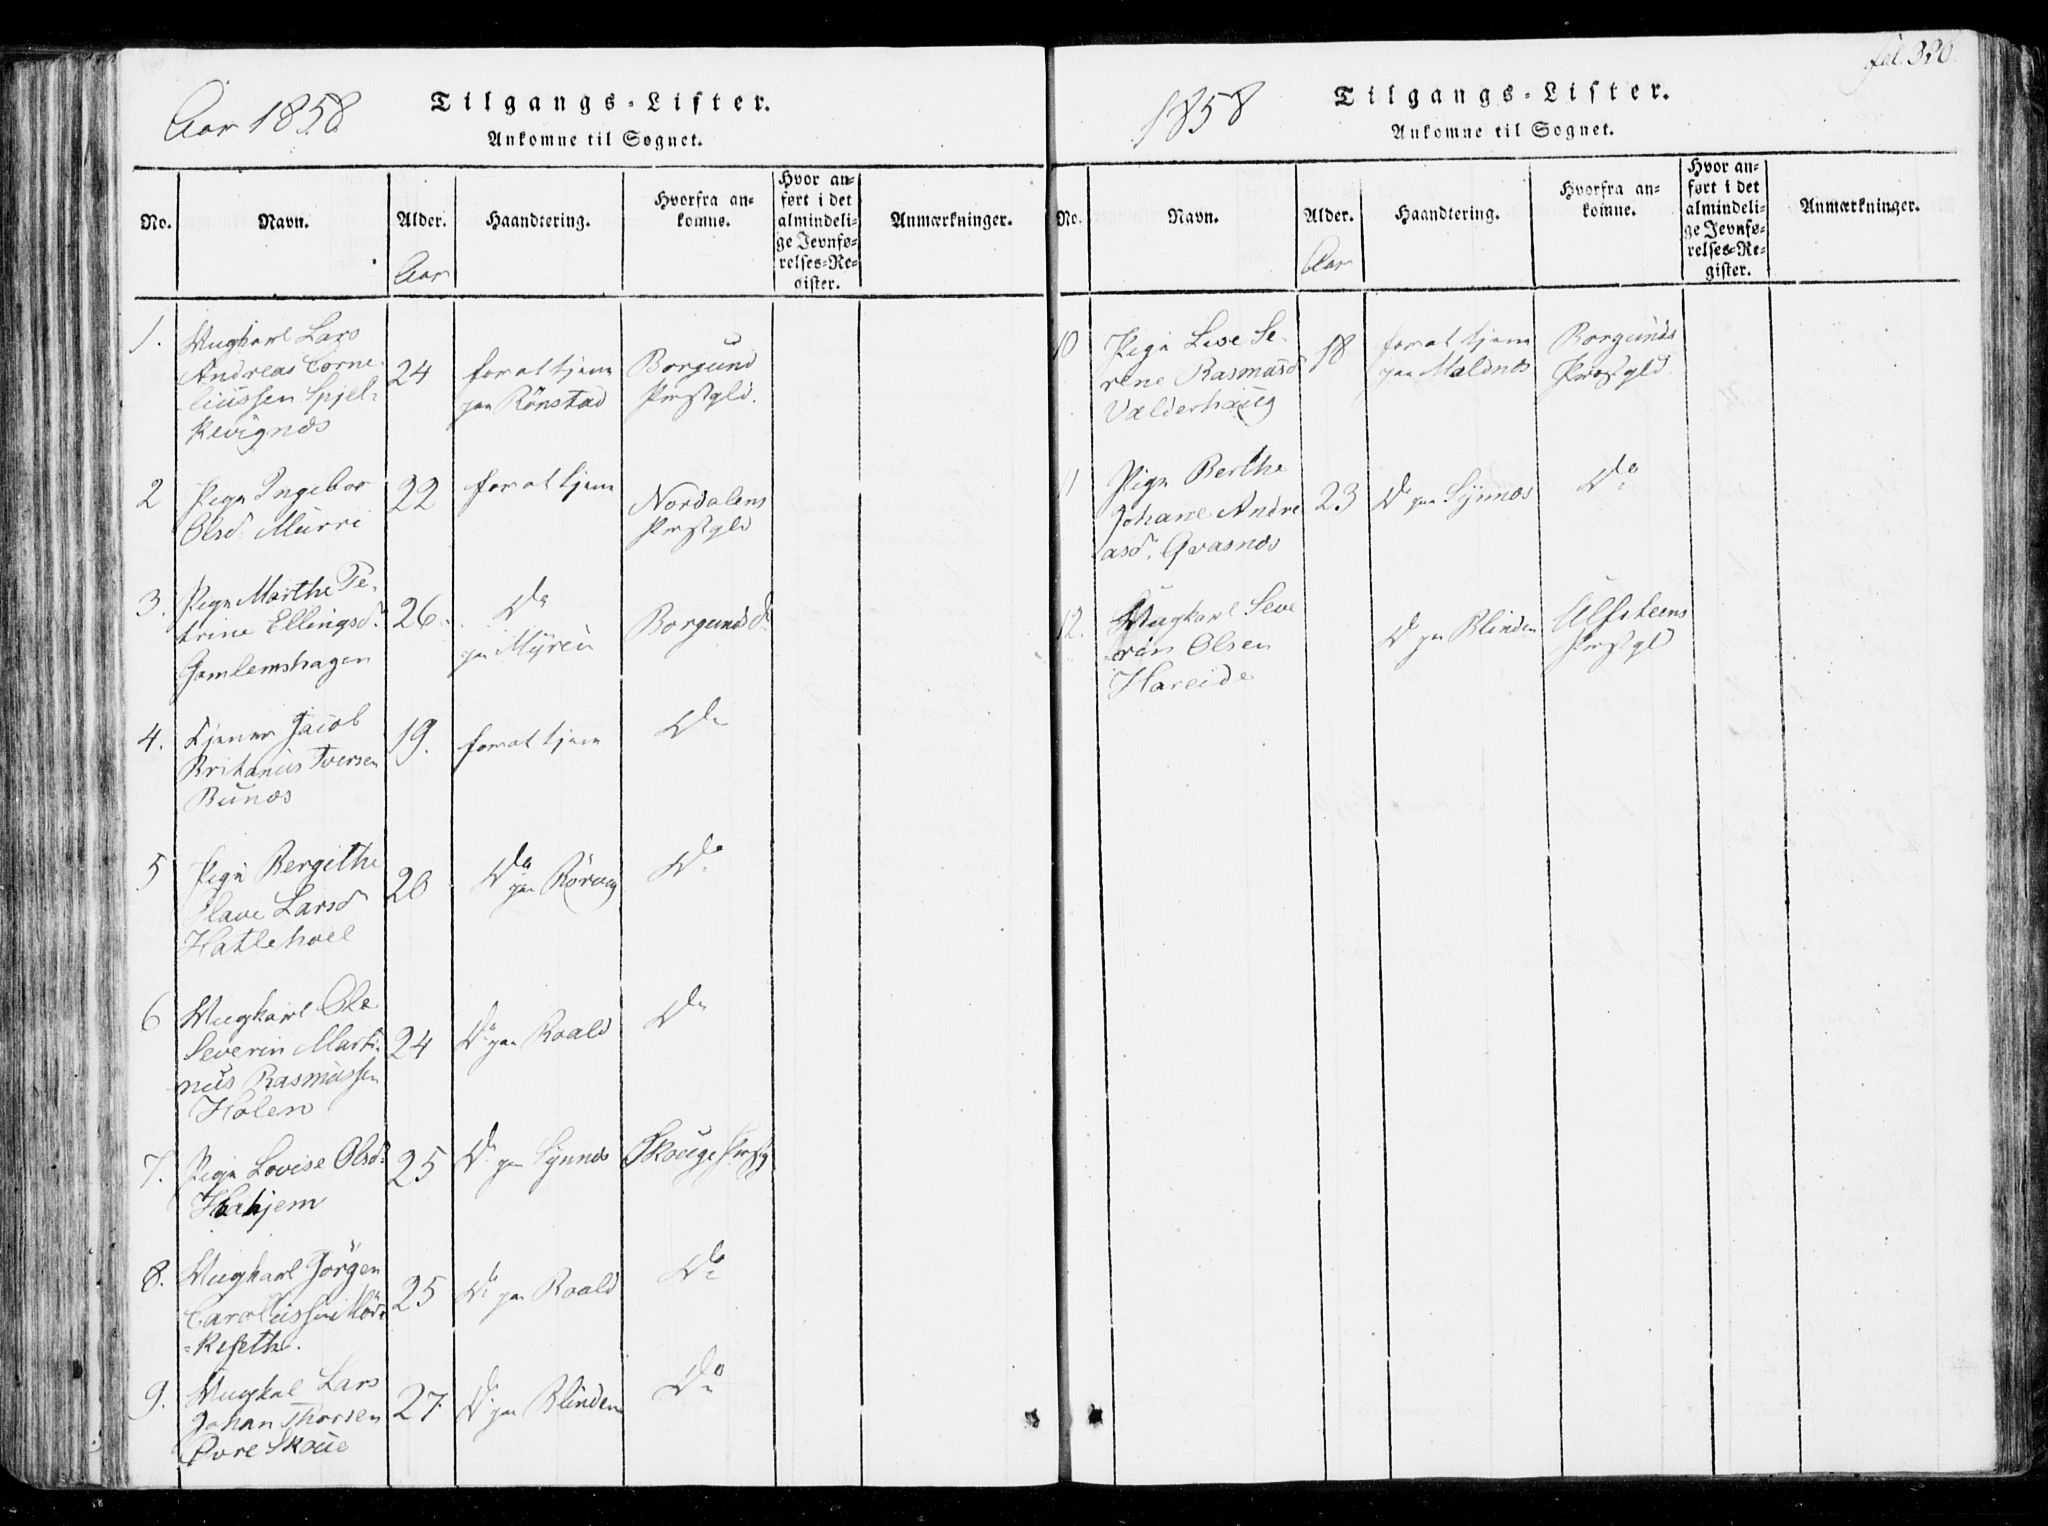 Aar 1858
Tilgangs-Lister.
Ankomne til Sognet.
No.
Navn.
Alder.
Aar
Haandtering.
Hvorfra an-
komne.
Hvor an-
ført i det
almindeli-
ge Jevnfø-
relses-Re-
gister.
Anmærkninger.
1.
Ungkarl Lars
Andreas Corne-
liussen Spjel-
kevignæs
24
for at tjene
paa Rönstad
Borgund
Præstgld.
2
Pige Ingebor
Olsd. Murri
22
for at tjene
Nordalens
Præstgld
3.
Pige Marthe Pe-
trine Ellingsd.
Gamlemshagen
26.
Do
paa Myren
Borgunds
4.
Tjener Jacob
Britanius Iversen
Bunæs
19.
for at tjene
Do
5
Pige Bergithe
Olave Larsd
Hatlehoel
20
Do
paa Rörvig
Do
6
Ungkarl Ole
Severin Marti-
nus Rasmussen
Holen
24
Do paa Roald
Do
7.
Pige Lovise Olsd.
Hahjem
25
Do paa Synnæs
Skouge Præstg
8.
Ungkarl Jörgen
Carolussen Mör-
=keseth.
25
Do paa Roald
Do
9.
Ungkal Lars
Johan Thorsen
Övre Skoue
27.
Do paa Blinden
Do
fol. 320.
1858
Tilgangs-Lister.
Ankomne til Sognet.
No.
Navn.
Alder.
Aar
Haandtering.
Hvorfra an-
komne.
Hvor an-
ført i det
almindeli-
ge Jevnfø-
relses-Re-
gister.
Anmærkninger.
10
Pige Lise Se-
rine Rasmusd
Valderhaug
18
for at tjene
paa Maldnæs
Borgunds
Præstgld.
11
Pige Berthe
Johane Andre
asd. Qvasnæs
23
Do paa Synnæs
Do
12.
Ungkarl Seve
rin Olsen
Hareide
Do paa Blinden
Ulfsteens
Præstgld